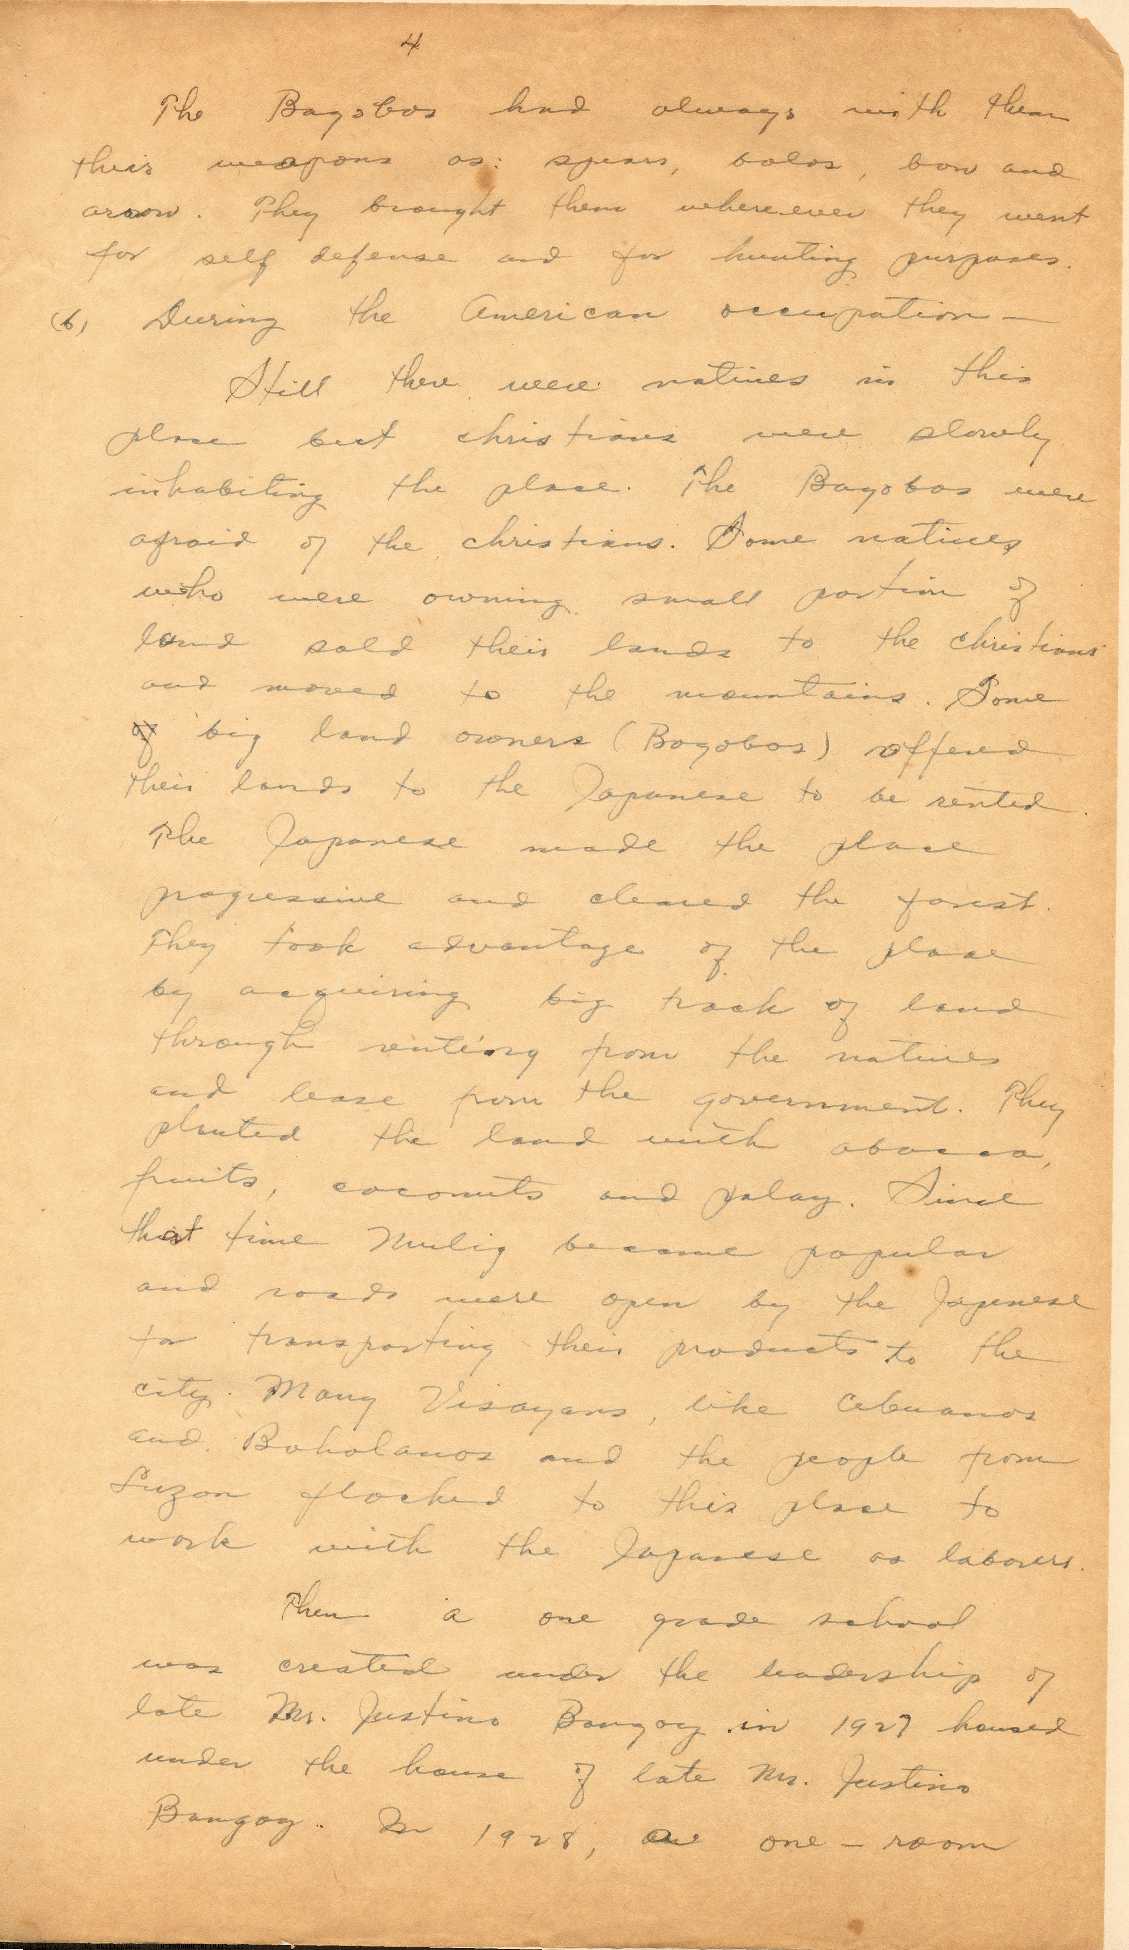 4
The Bagobos had always with them
their weapons as: spears, bolos, bow and
arrow. They brought them where-ever they went
for self defense and for hunting purposes.
(b) During the American occupation —
Still there were natives in this
place but christians were slowly
inhabiting the place. The Bagobos were
afraid of the christians. Some natives
who were owning small portion of
land sold their lands to the christians
and moved to the mountains. Some
of big land owners (Bagobos) offered
their lands to the Japanese to be rented.
The Japanese made the place
progressive and cleared the forest.
They took advantage of the place
by acquiring big track of land
through renting from the natives
and lease from the government. They
planted the land with abacca,
fruits, coconuts and palay. Since
that time Mulig became popular
and roads were open by the Japanese
for transporting their products to the
city. Many Visayans, like Cebuanos
and Boholanos and the people from
Luzon flocked to this place to
work with the Japanese as laborers.
Then a one grade school
was created under the leadership of
late Mr. Justino Bangoy in 1927 housed
under the house of late Mr. Justino
Bangoy. In 1928, a one-room